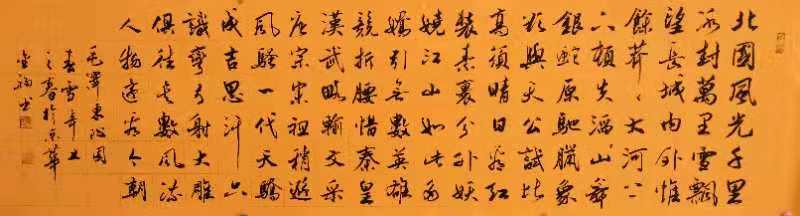 北國風光千里
冰封萬里雪飄
望長城內外惟
餘莽〻大河上
下頓失滔〻山舞
銀蛇原馳臘象
欲與天公試比
高須晴日看紅
裝素裹分外妖
嬈江山如此多
嬌引無數英雄
競折腰惜秦皇
漢武略輸文采
唐宗宋祖稍遜
風騷一代天驕
成吉思汗只
識彎弓射大雕
俱往矣數風流
人物還看今朝
毛澤東沁園
春雪辛丑
之春於京華
書